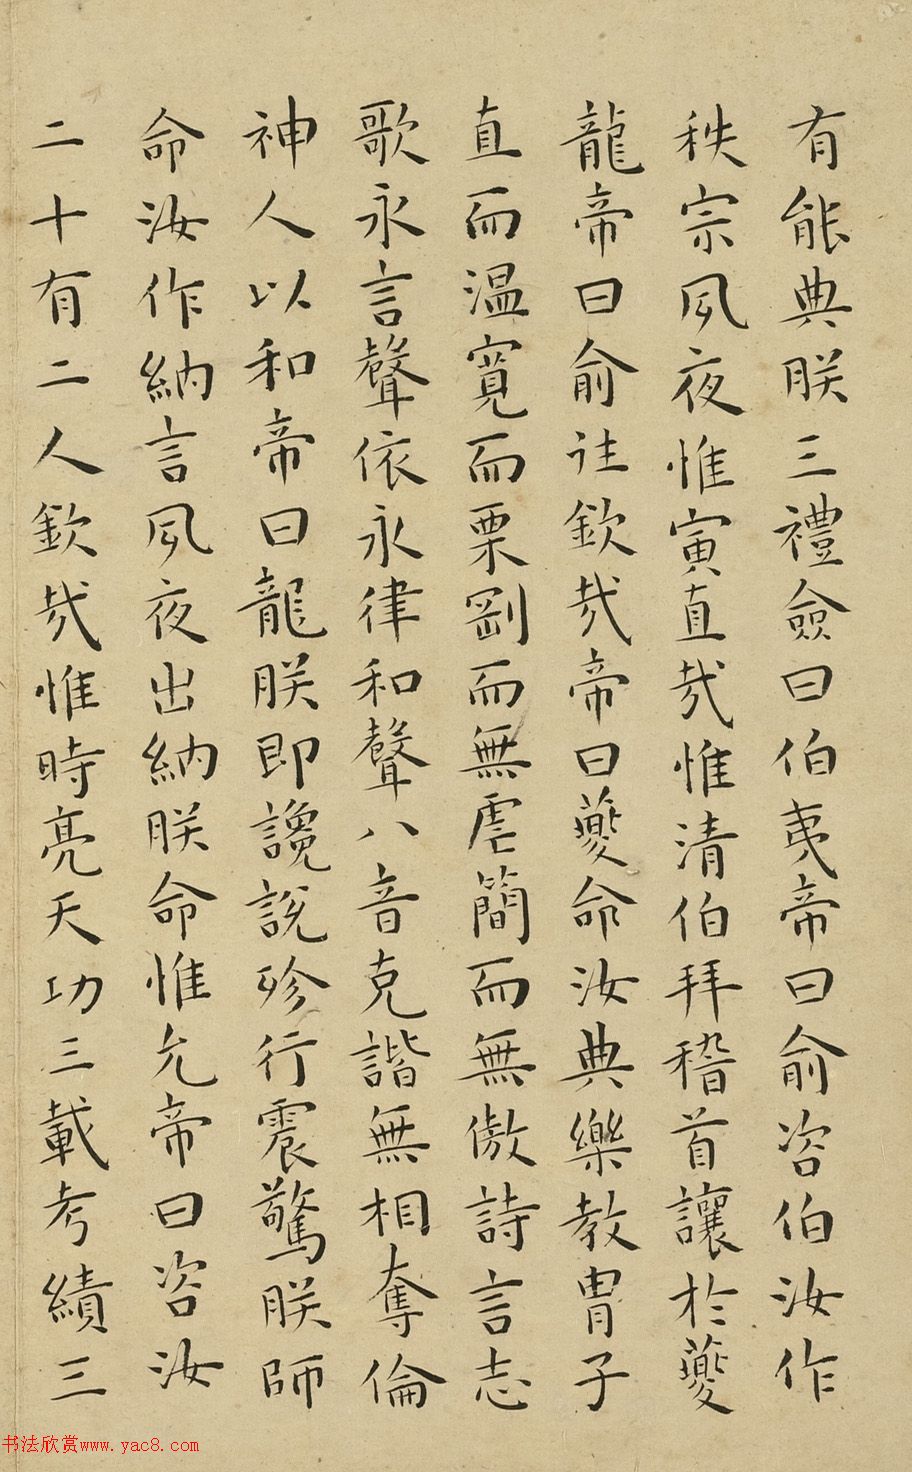 有能典朕三禮僉曰伯夷帝曰俞咨伯汝作
秩宗夙夜惟寅直哉惟清伯拜稽首讓於夔
龍帝曰俞往欽哉帝曰夔命汝典樂教冑子
直而溫寬而栗剛而無虐簡而無傲詩言志
歌永言聲依永律和聲八音克諧無相奪倫
神人以和帝曰龍朕即讒說殄行震驚朕師
命汝作納言夙夜出納朕命惟允帝曰咨汝
二十有二人欽哉惟時亮天功三載考績三
书法欣赏www.yac8.com